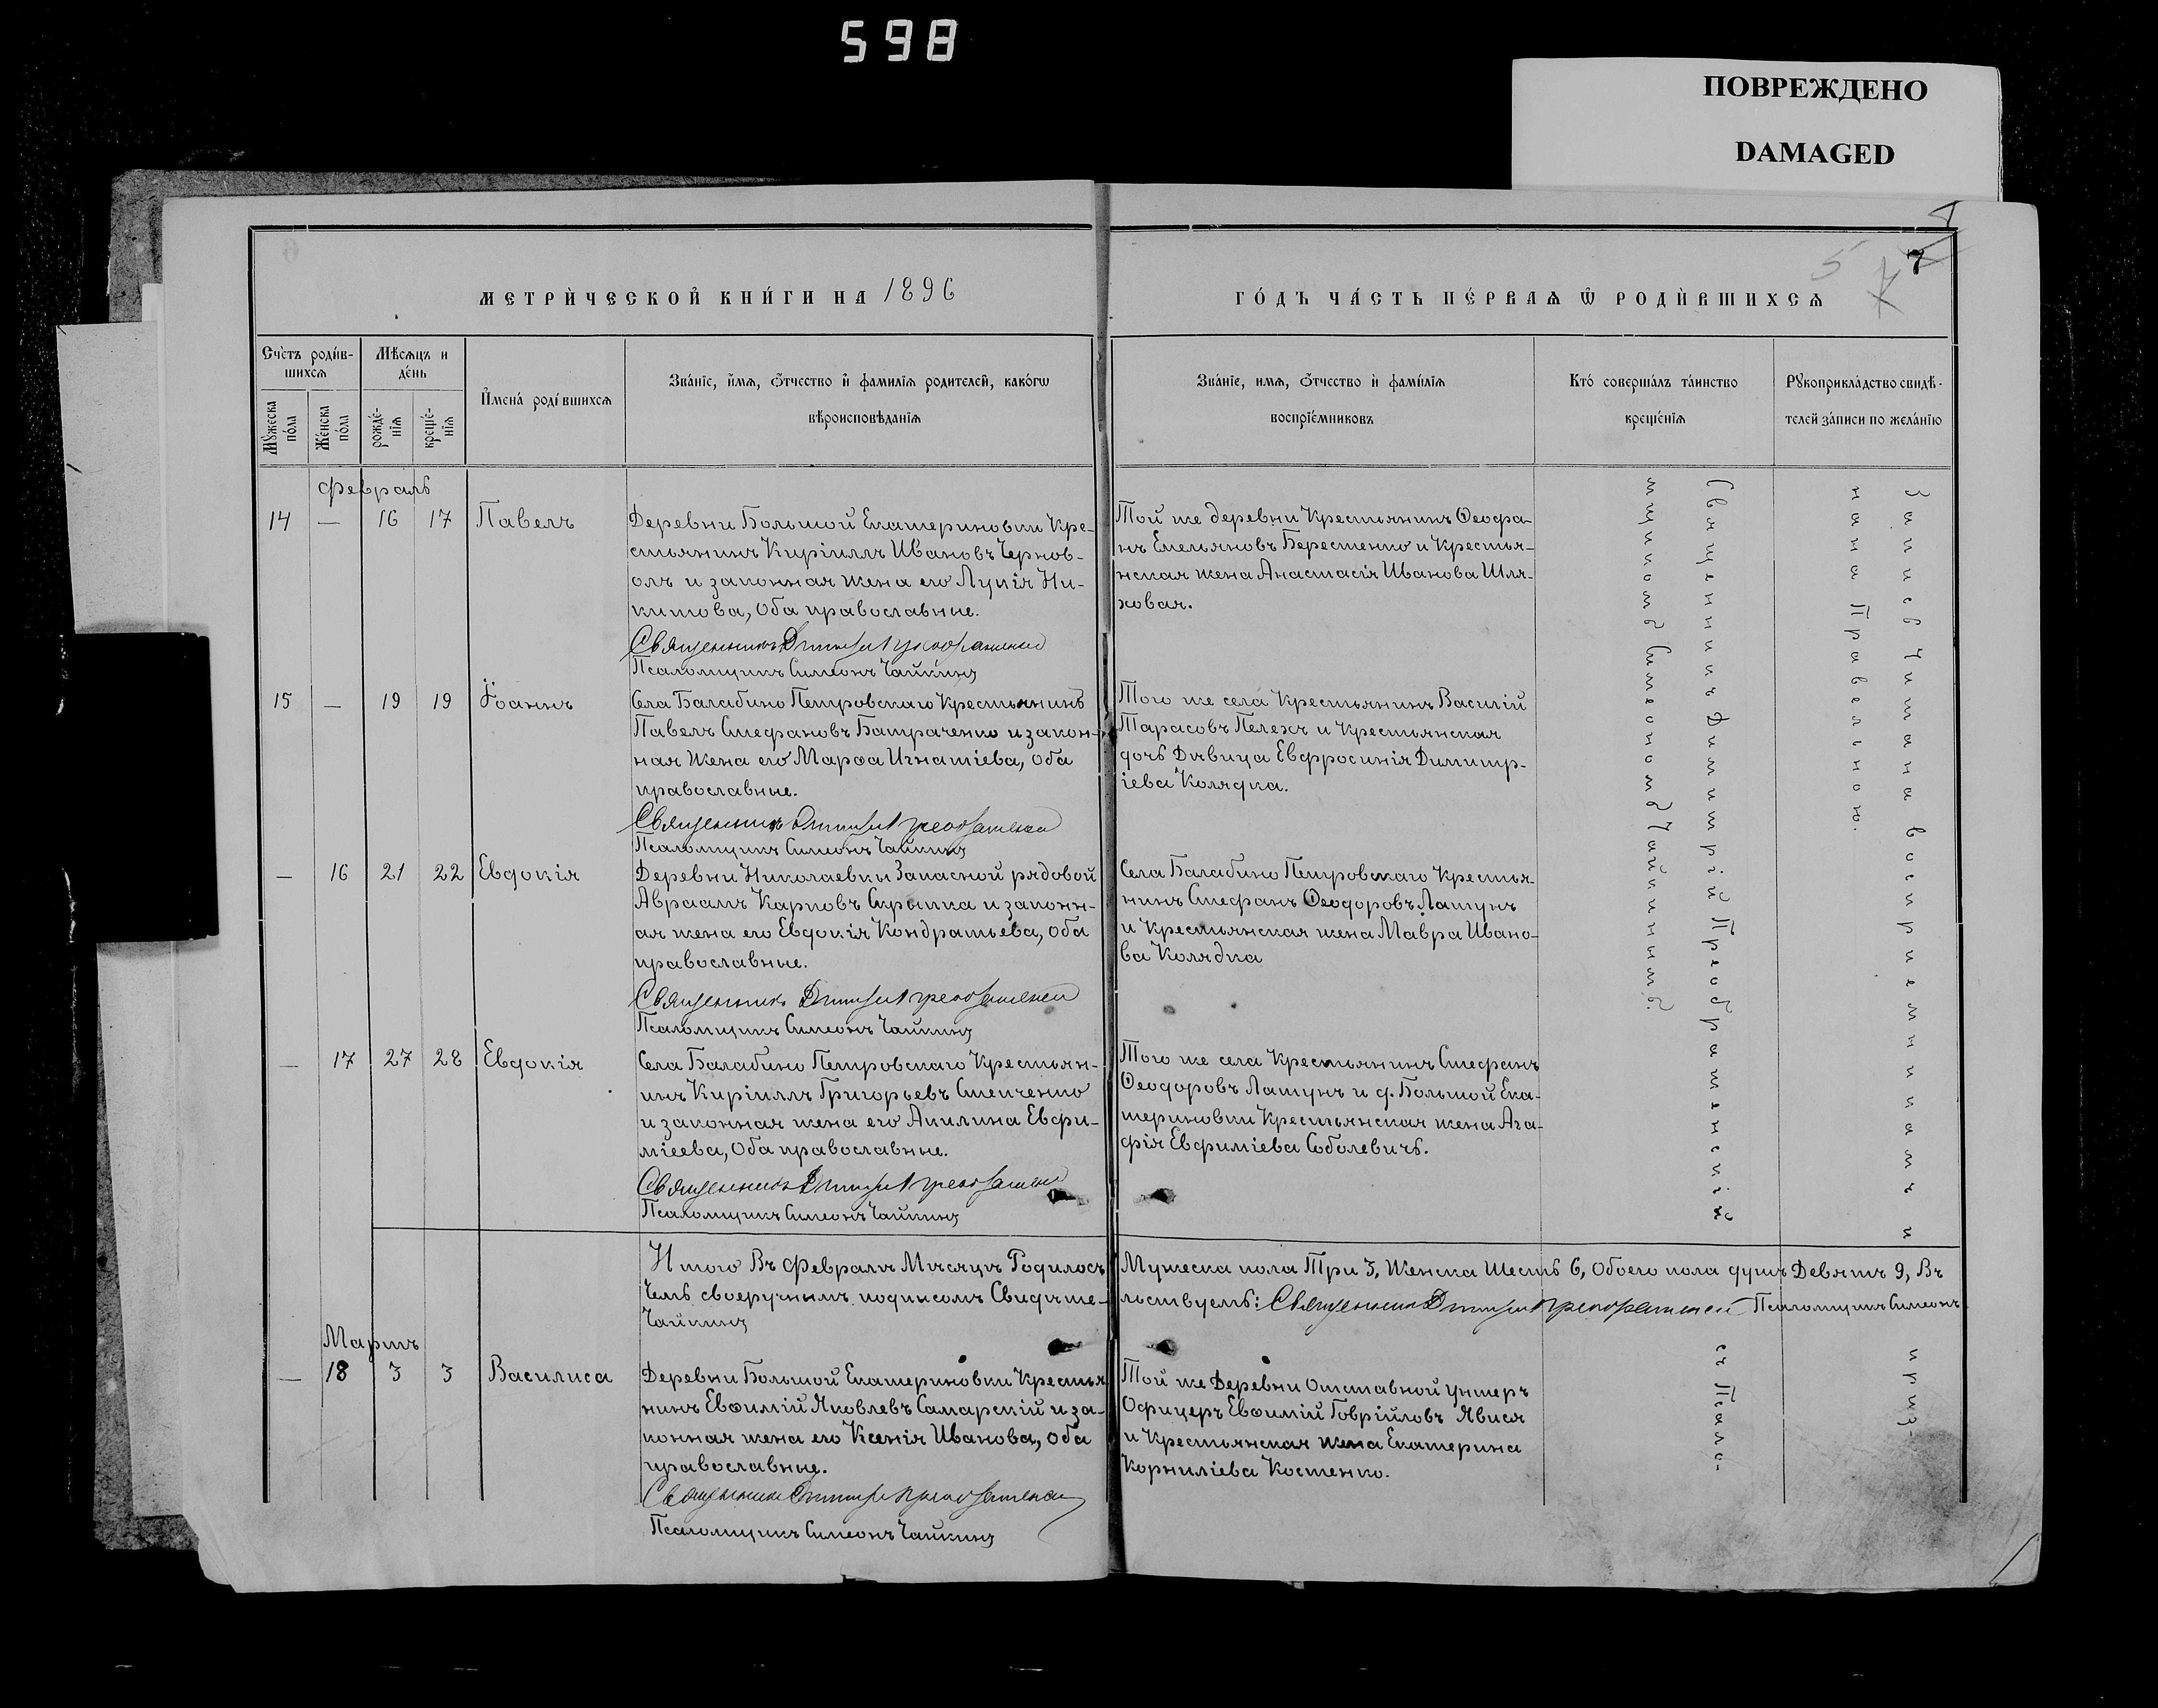 598
ПОВРЕЖДЕНО
DAMAGED
5
7
МЕТРИ́ЧЕСКОЙ КНИ́ГИ НА 1896
ГО́ДЪ ЧА́СТЬ ПЕ́РВАѦ Ѽ РОДИ́ВШИХСѦ
Сче́тъ роди́в-
шихсѧ
Мѣ́сѧцъ и
де́нь
Мꙋ́жеска
по́ла
Же́нска
по́ла
рожде́-
нїѧ
креще́-
нїѧ
И҆мена́ роди́вшихсѧ
Зва́нїе, и҆́мѧ, ѻ҆́тчество и҆ фами́лїѧ родителей, како́гѡ
вѣроисповѣ́данїѧ
Зва́нїе, имѧ, ѻ҆́тчество и҆ фами́лїѧ
воспрїе́мниковъ
Кто́ соверша́лъ та́инство
креще́нїѧ
Рꙋкоприкла́дство свидѣ́-
телей за́писи по жела́нїю
Февраль
14 — 16 17 Павелъ
Деревни Большой Екатериновки Кре-
стьянинъ Кириллъ Ивановъ Чернов-
олъ и законная жена его Лукія Ни-
китова, Оба православные.
Священникъ Димитрій Преображенскій
Псаломщикъ Симеонъ Чайкинъ
Той же деревни Крестьянинъ Ѳеофа-
нъ Емельяновъ Берестенко и Крестья-
нская жена Анастасія Иванова Шля-
ховая.
15 — 19 19 Іоаннъ
Села Балабино Петровскаго Крестьянинъ
Павелъ Стефановъ Батраченко и закон-
ная жена его Марѳа Игнатіева, Оба
православные.
Священникъ Димитрій Преображенскій
Псаломщикъ Симеонъ Чайкинъ
Того же села Крестьянинъ Василій
Тарасовъ Пелехъ и Крестьянская
дочь Дѣвица Евфросинія Димитр-
іева Колядка.
— 16 21 22 Евдокія
Деревни Николаевки Запасной рядовой
Авраамъ Карповъ Скрыпка и законн-
ая жена его Евдокія Кондратьева, Оба
православные.
Священникъ Димитрій Преображенскій
Псаломщикъ Симеонъ Чайкинъ
Села Балабино Петровскаго Крестья-
нинъ Стефанъ Ѳеодоровъ Латунъ
и Крестьянская жена Мавра Ивано-
ва Колядка
— 17 27 28 Евдокія
Села Балабино Петровскаго Крестьян-
инъ Кириллъ Григорьевъ Степченко
и законная жена его Акилина Евфи-
міеева, Оба православные.
Священникъ Димитрій Преображенскій
Псаломщикъ Симеонъ Чайкинъ
Того же села Крестьянинъ Стефанъ
Ѳеодоровъ Латунъ и д. Большой Ека-
териновки Крестьянская жена Ага-
фія Евфиміева Соболевичъ.
Священникъ Димитрій Преображенскій съ Псало-
мщикомъ Симеономъ Чайкинымъ.
Запись читана воспріемникамъ и приз-
нана Правельною.
Итого Въ Февралѣ Мѣсяцѣ Родилось Мужеска пола Три 3, Женска Шесть 6, Обоего пола душъ Девять 9, Въ
Чемъ своеручнымъ подписомъ Свидѣте-льствуемъ: Священникъ Димитрій Преображенскій Псаломщикъ Симеонъ
Чайкинъ
Мартъ
— 18 3 3 Василиса
Деревни Большой Екатериновки Крестья-
нинъ Евѳимій Яковлевъ Самарскій и за-
конная жена его Ксенія Иванова, Оба
православные.
Священникъ Димитрій Преображенскій
Псаломщикъ Симеонъ Чайкинъ
Той же Деревни Отставной Унтеръ
Офицеръ Евѳимій Говрійловъ Явися
и Крестьянская жена Екатерина
Корниліева Костенко.